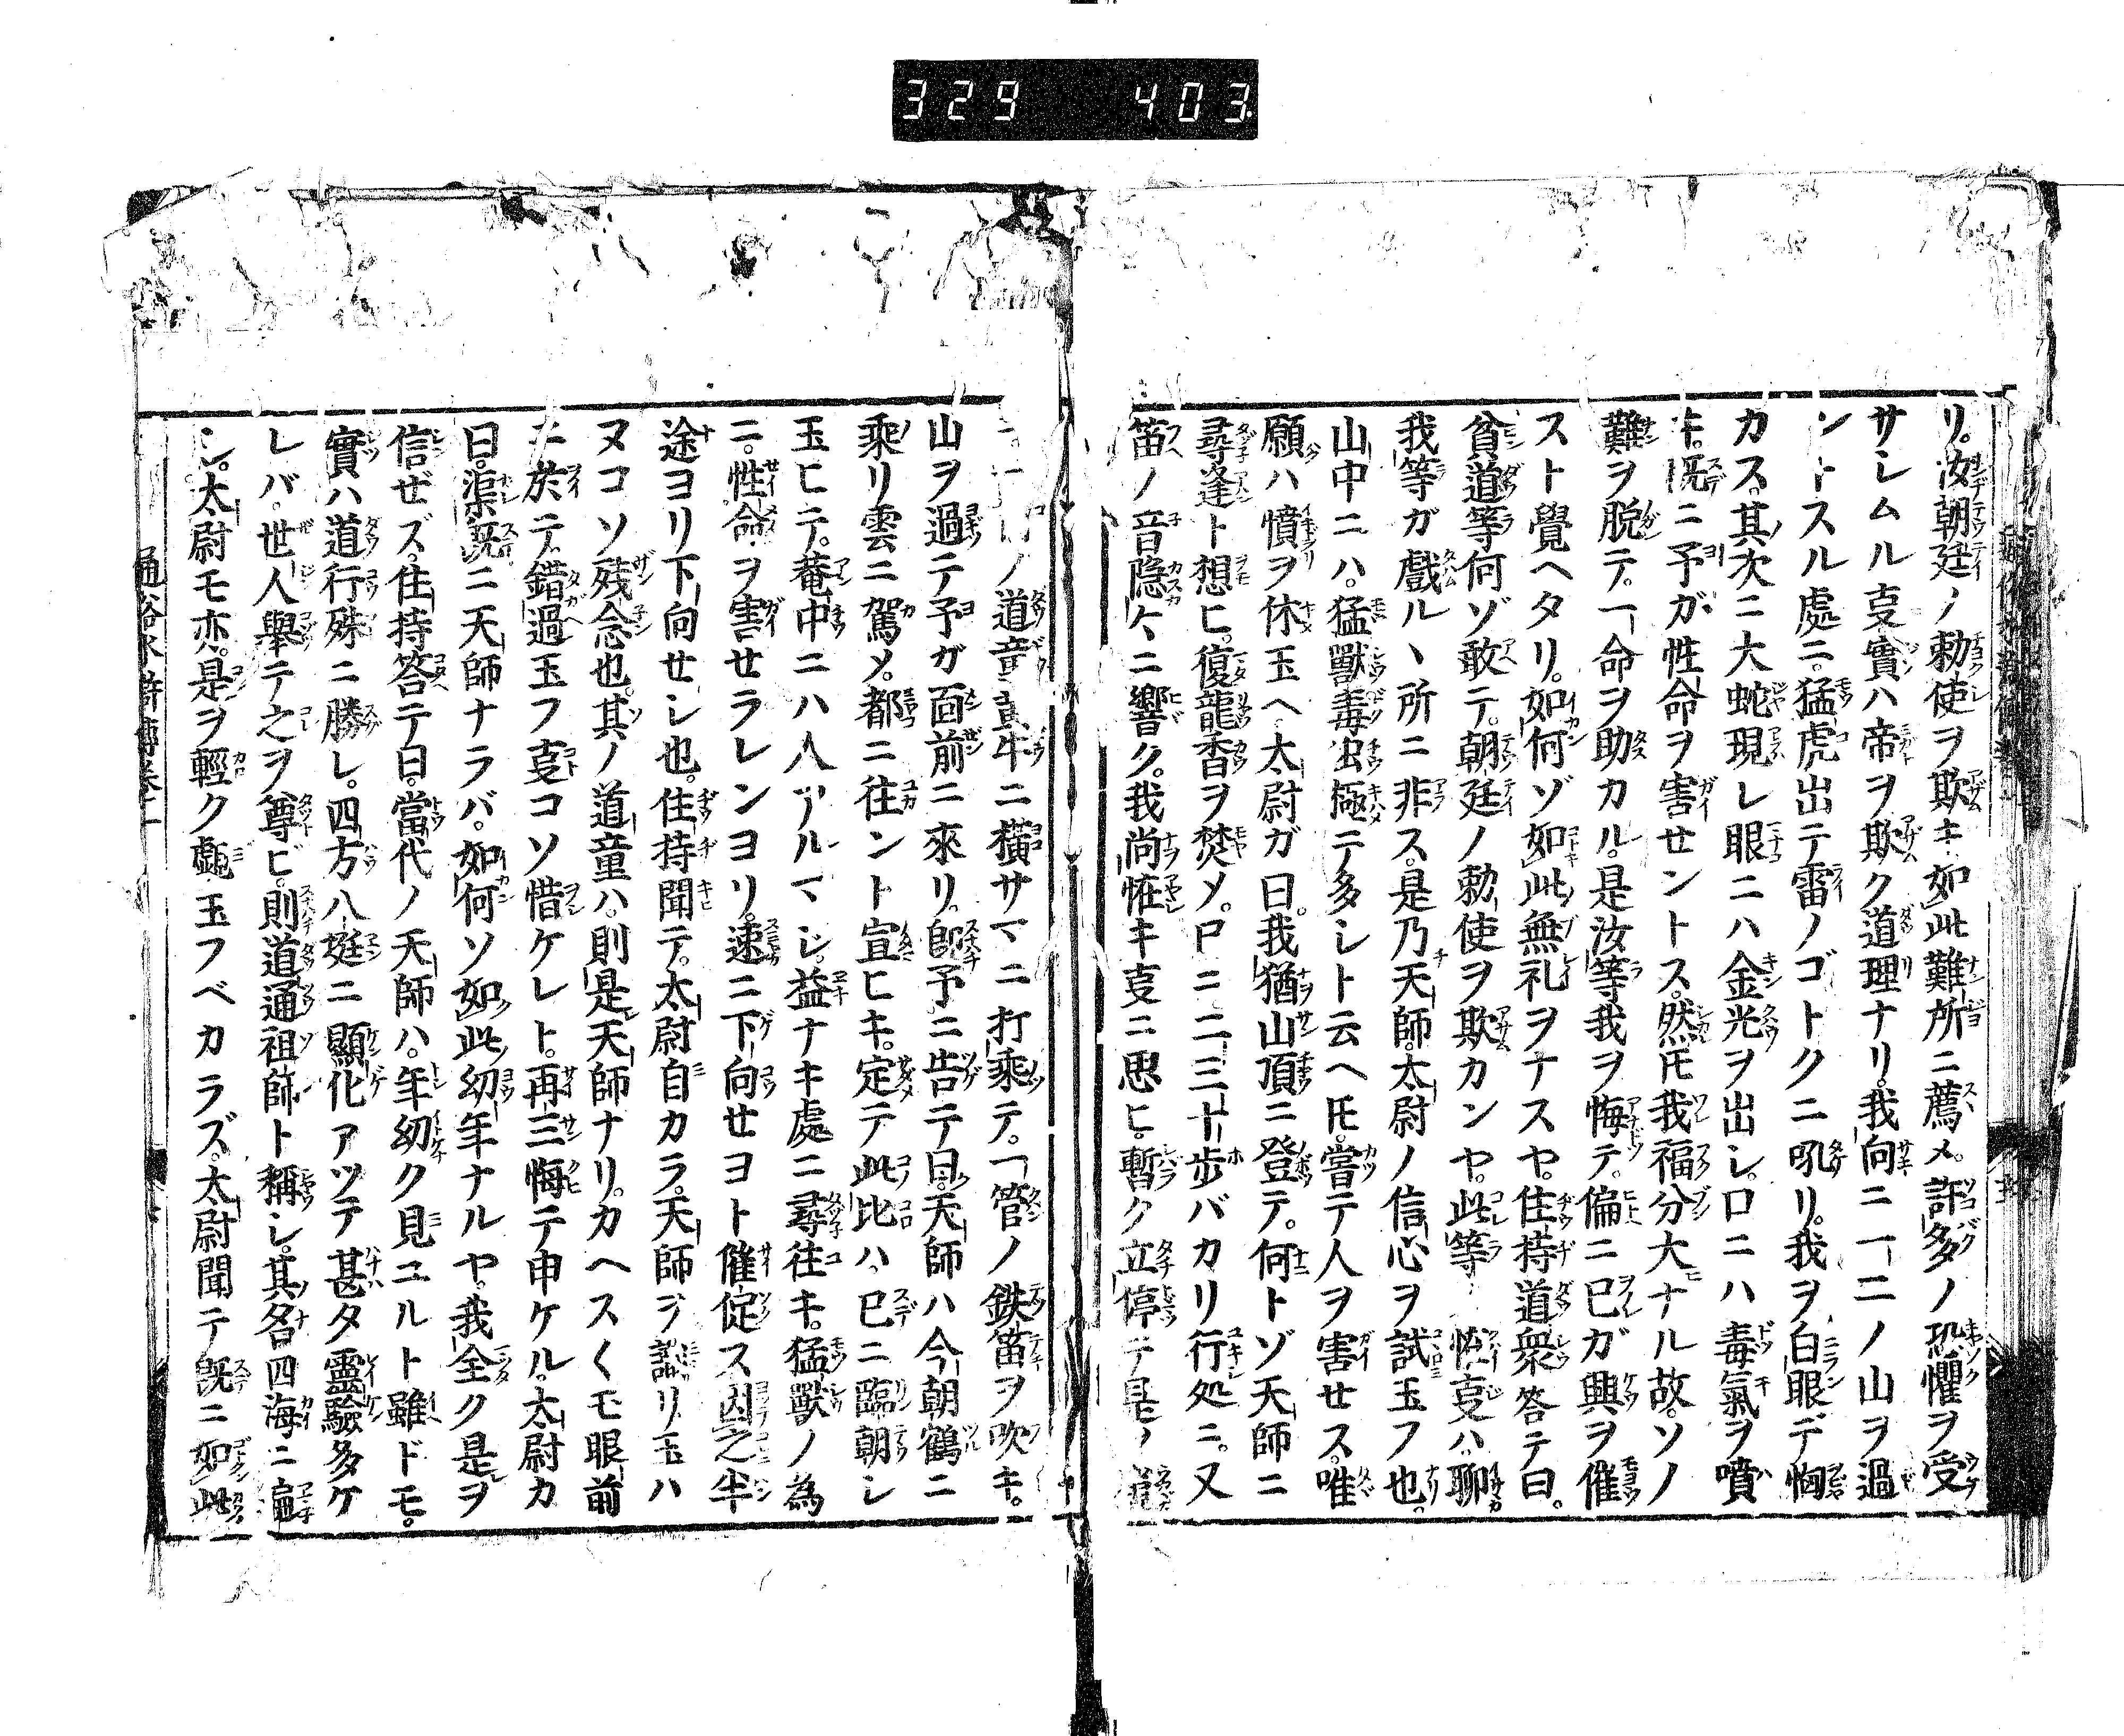 329 403
リ。汝朝廷ノ勅使ヲ欺キ如此難所ニ薦メ。許多ノ恐懼ヲ受
サレムル𠮷實ハ帝ヲ欺ク道理ナリ。我向ニ一二ノ山ヲ過
ントスル處ニ。猛虎出テ雷ノゴトクニ吼リ。我ヲ白眼デ恟
カス。其次ニ大蛇現レ眼ニハ金光ヲ出シ。口ニハ毒氣ヲ噴
キ。既ニ予ガ性命ヲ害セントス。然𪜈我福分大ナル故。ソノ
難ヲ脱テ。一命ヲ助カル。是汝等我ヲ侮テ。偏ニ己ガ興ヲ催
スト覺ヘタリ。如何ゾ如此無礼ヲナスヤ。住持道衆答テ曰。
貧道等何ゾ敢テ。朝廷ノ勅使ヲ欺カンヤ。此等 怪事ハ。聊
我等ガ戯ルヽ所ニ非ス。是乃天師。太尉ノ信心ヲ試玉フ也。
山中ニハ。猛獸毒虫極テ多シト云ヘ𪜈。嘗テ人ヲ害セス。唯
願ハ憤ヲ休玉ヘ太尉ガ曰。我猶山頂ニ登テ。何トゾ天師ニ
尋逢ト想ヒ。復龍香ヲ焚メ。口ニ二三十歩バカリ行処ニ。又
笛ノ音隐ヽニ響ク。我尚恠キ事ニ思ヒ。暫ク立停テ是ノ
ノ道童黄牛ニ横サマニ打乘テ。一管ノ鉄笛ヲ吹キ。
山ヲ過テ予ガ面前ニ來リ。卽予ニ告テ曰。天師ハ今朝鶴ニ
乘リ雲ニ駕メ。都ニ往ント宣ヒキ。定テ此比ハ。已ニ臨朝シ
玉ヒテ。菴中ニハ人アルマジ。益ナキ處ニ尋往キ。猛獸ノ為
ニ。性命ヲ害セラレンヨリ。速ニ下向セヨト催促ス因之半
途ヨリ下向セシ也。住持聞テ。太尉自カラ。天師ヲ認リ玉ハ
ヌコソ残念也。其ノ道童ハ。則是天師ナリ。カヘスくモ眼前
ニ於テ。錯過玉フ事コソ惜ケレト。再三悔テ申ケル。太尉カ
曰。渠既ニ天師ナラバ。如何ソ如此幼年ナルヤ。我全ク是ヲ
信ぜズ。住持答テ曰。當代ノ天師ハ。年幼ク見ユルト雖ドモ。
實ハ道行殊ニ勝レ。四方八挺ニ顯化アツテ甚タ靈驗多ケ
レバ。世人舉テ之ヲ尊ビ。則道通祖師ト稱シ。其名四海ニ遍
シ。太尉モ亦。是ヲ輕ク 玉フベカラズ。太尉聞テ既ニ如此
通俗水滸傳卷十一